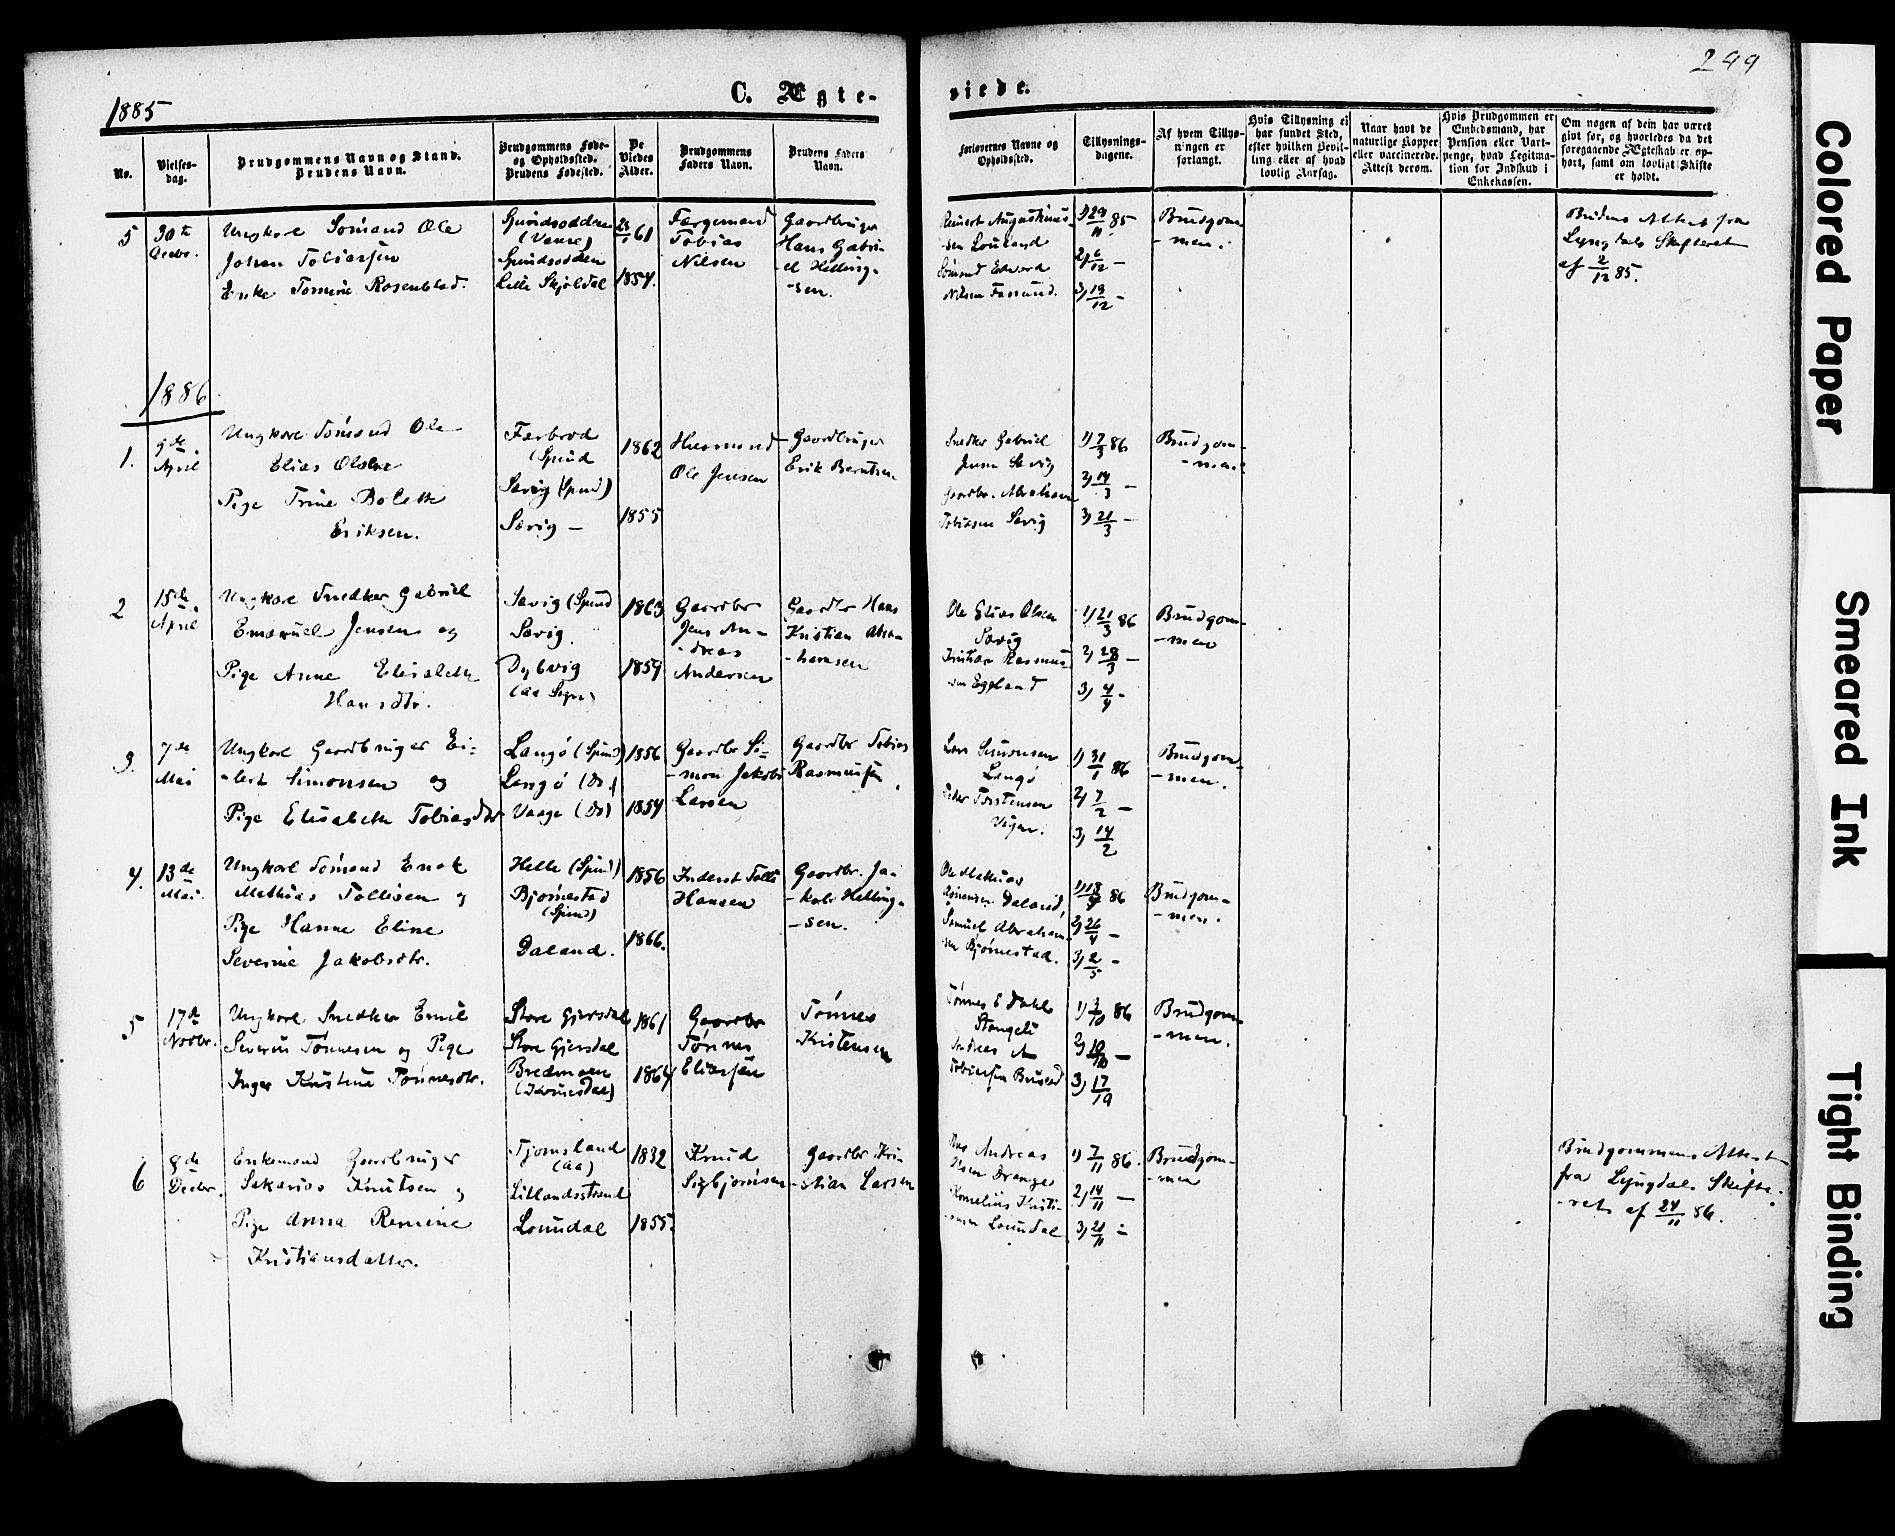 1885
C. Ægte-
viede.
299
No.
Vielses-
dag.
Brudgommens Navn og Stand.
Brudens Navn.
Brudgommens Føde-
og Opholdssted.
Brudens Fødested.
De
Viedes
Alder.
Brudgommens
Faders Navn.
Brudens Faders
Navn.
Forlovernes Navne og
Opholdssted.
Tillysnings-
dagene.
Af hvem Tillys-
ningen er
forlangt.
Hvis Tillysning ei
har fundet Sted,
efter hvilken Bevil-
ling eller af hvad
lovlig Aarsag.
Naar havt de
naturlige Kopper
eller vaccinerede.
Attest derom.
Hvis Brudgommen er
Embedsmand, har
Pension eller Vart-
penge, hvad Legitima-
tion for Indskud i
Enkekassen.
Om nogen af dem har været
gift før, og hvorledes da det
foregaaende Ægteskab er op-
hørt, samt om lovligt Skifte
er holdt.
5
30te
Decbr.
Ungkarl Sømand Ole
Johan Tobiassen
Enke Tomine Rosenblad.
(Vanse)
Lille Skjoldal
61
1857.
Færgemand
Tobias
Nilsen
Gaardbruger
Hans Gabri-
el Helling-
sen.
Augustinus-
sen
Sømand Edvard
Nilsen
1) 29/11 85
2) 6/12 -
3) 13/12 -
Brudgom-
-men.
Brudens Attest fra
Lyngdals Skifteret
af 2/12 85.
1886
1.
9de
April
Ungkarl Sømand Ole
Elias Olsen
Pige Trine Bolette
Eriksen.
(Spind
Sævig (Spind)
Sævig -
1862
1855
Husmand
Ole Jensen
Gaardbruger
Erik Berntsen
Snedker Gabriel
Jensen Sævig
Gaardbr. Abraham
Tobiasen Sævig
1) 7/3 86
2) 14/3 -
3) 21/3 -
Brudgom-
-men.
2
15de
April
Ungkarl Snedker Gabriel
Emanuel Jensen og
Pige Anne Elisabeth
Hansdtr.
Sævig (Spind
Sævig.
Dybvig
1863
1859
Gaardbr
Jens An-
-dreas
Andersen
Gaardbr Hans
Kristian Abra-
-hamsen
Ole Elias Olsen
Sævig
Kristian Rasmus-
sen Eggland
1) 21/3 86
2) 28/3 -
3) 4/4 -
Brudgom-
-men
3.
7de
Mai
Ungkarl Gaardbruger Ei-
-lert Simonsen og
Pige Elisabeth Tobiasdtr
Langø (Spind)
Langø (Do)
Vaage (Do)
1856
1857
Gaardbr Si-
-mon Jakobs
Larsen
Gaardbr Tobias
Rasmussen
Lars Simonsen
Langø
Peder Torstensen
1) 31/1 86
2) 7/2 -
3) 14/2
Brudgom-
-men.
4.
13de
Mai.
Ungkarl Sømand Enok
Mathias Tollisen og
Pige Hanne Eline
Severine Jakobsdtr.
Helle (Spind)
Bjørnestad
(Spind)
Daland.
1856
1866.
Inderst Tolli
Hansen
Gaardbr. Ja-
-kob Helling-
-sen.
Ole Mathias
Asmensen Daland,
Samuel Abraham-
sen Bjørnestad.
1) 18/4 86
2) 26/4 -
3) 2/5 -
Brudgom-
-men.
5
17de
Novbr.
Ungkarl Snedker Emil
Severin Tønnesen og Pige
Inger Kristine Tønnesdtr.
Store Gjersdal
Store Gjersdal
Bredmoen
1861
1864
Gaardbr
Tønnes
Eliassen
Tønnes
Kristensen
Tønnes E Dahl
Stangeli
Andreas
Tobiassen
1) 3/10 86
2) 10/10 -
3) 17/10
Brudgom-
-men.
6
8de
Decbr.
Enkemand Gaardbruger
Sakarias Knutsen og
Pige Anna Remine
Kristiansdatter.
Tjomsland
(Aa)
Litlandsstrand
Lomdal
1832
1855.
Knud
Sigbjørnsen
Gaardbr. Kri-
-stian Larsen
Andreas
Olsen Drange
Kornelius Kristi-
-ansen Lomdal
1) 7/11 86.
2) 14/11 -
3) 21/11 -
Brudgom-
-men
Brudgommens Attest
fra Lyngdals Skifte-
-ret af 24/11 86.
Colored Paper
Smeared Ink
Tight Binding